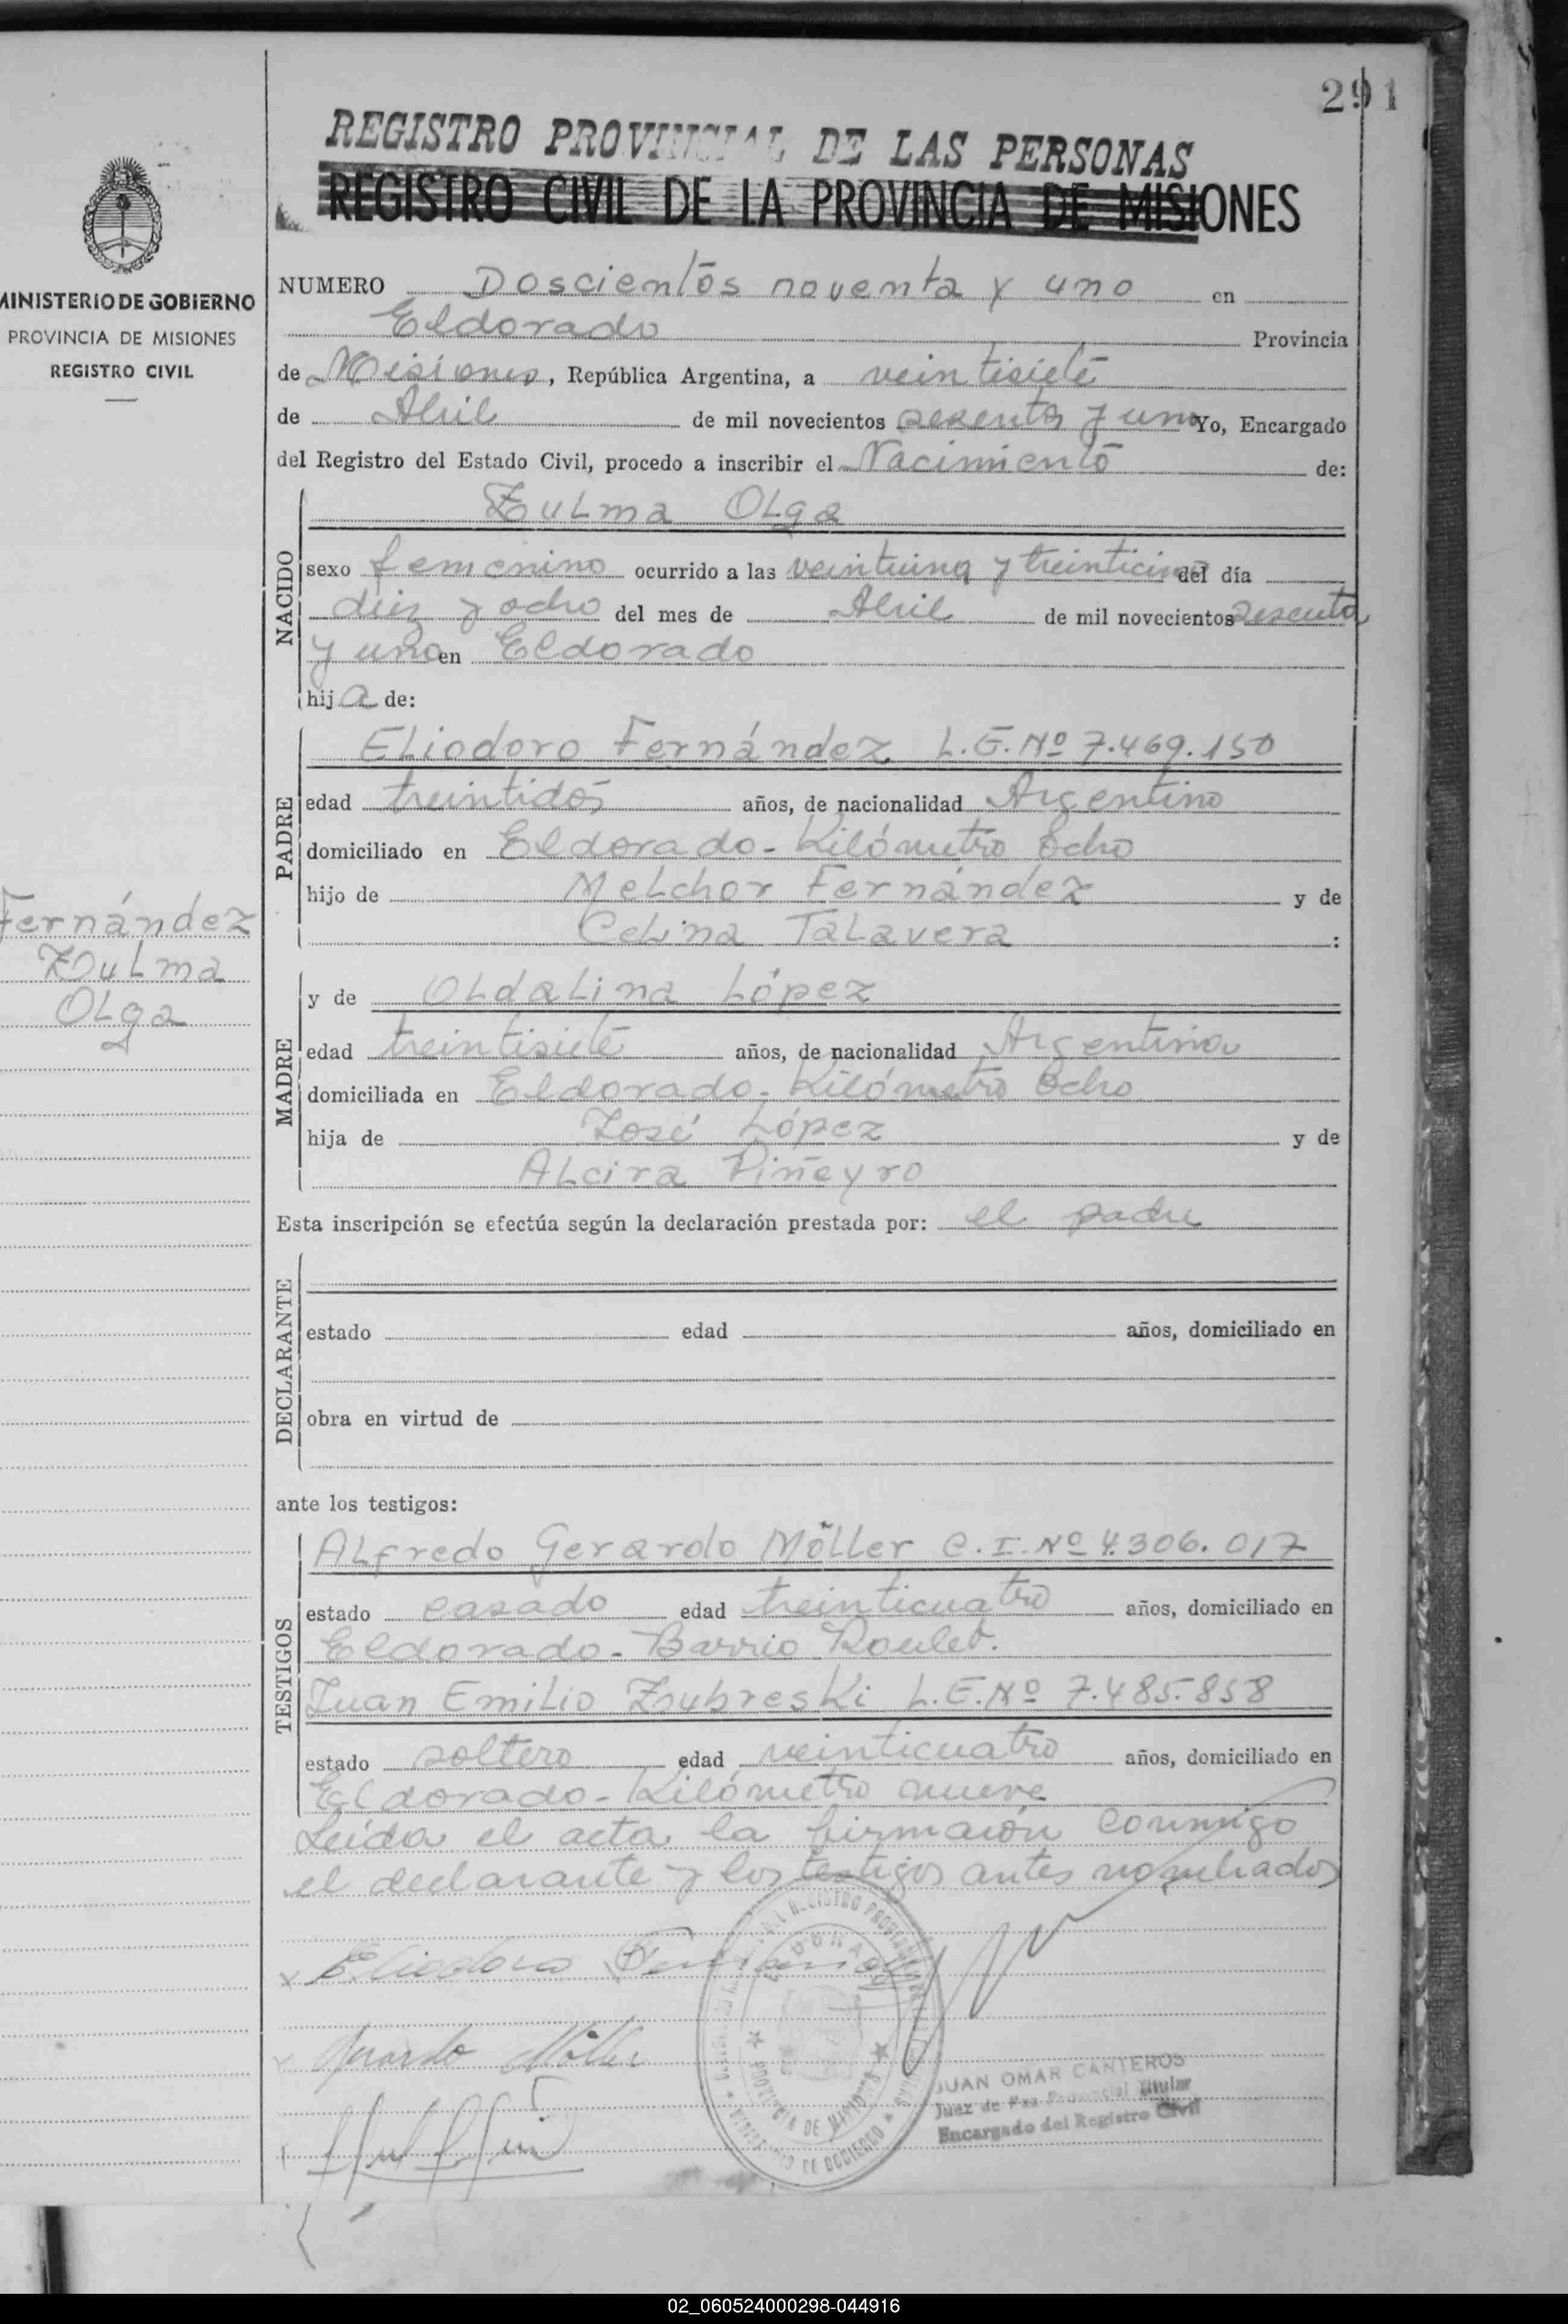 291
REGISTRO PROVINCIAL DE LAS PERSONAS
REGISTRO CIVIL DE LA PROVINCIA DE MISIONES
MINISTERIO DE GOBIERNO
PROVINCIA DE MISIONES
REGISTRO CIVIL
NUMERO Doscientos noventa y uno en
Eldorado Provincia
de Misiones, República Argentina, a veintisiete
de Abril de mil novecientos sesenta y uno Yo, Encargado
del Registro del Estado Civil, procedo a inscribir el Nacimiento de:
NACIDO
Zulma Olga
sexo femenino ocurrido a las veintiuna y treinticinco del día
diez y ocho del mes de Abril de mil novecientos sesenta
y uno en Eldorado
hija de:
PADRE
Eliodoro Fernández L.E.Nº 7.469.150
edad treintidós años, de nacionalidad Argentino
domiciliado en Eldorado - Kilómetro Ocho
hijo de Melchor Fernández y de
Celina Talavera :
Fernández
Zulma
Olga
MADRE
y de Oldalina López
edad treintisiete años, de nacionalidad Argentina
domiciliada en Eldorado - Kilómetro Ocho
hija de José López y de
Alcira Piñeyro
Esta inscripción se efectúa según la declaración prestada por: el padre
DECLARANTE
estado edad años, domiciliado en
obra en virtud de
ante los testigos:
TESTIGOS
Alfredo Gerardo Möller C.I.Nº 4.306.017
estado casado edad treinticuatro años, domiciliado en
Eldorado - Barrio Roulet.
Juan Emilio Zubreski L.E.Nº 7.485.858
estado soltero edad veinticuatro años, domiciliado en
Eldorado - Kilómetro nueve
Leída el acta la firmaron conmigo
el declarante y los testigos antes nombrados
Eliodoro Fernandez
Gerardo Möller
ELDORADO
PROVINCIA DE MISIONES
MINISTERIO DE GOBIERNO
JUAN OMAR CANTEROS
Juez de Paz Provincial Titular
Encargado del Registro Civil
02_060524000298-044916